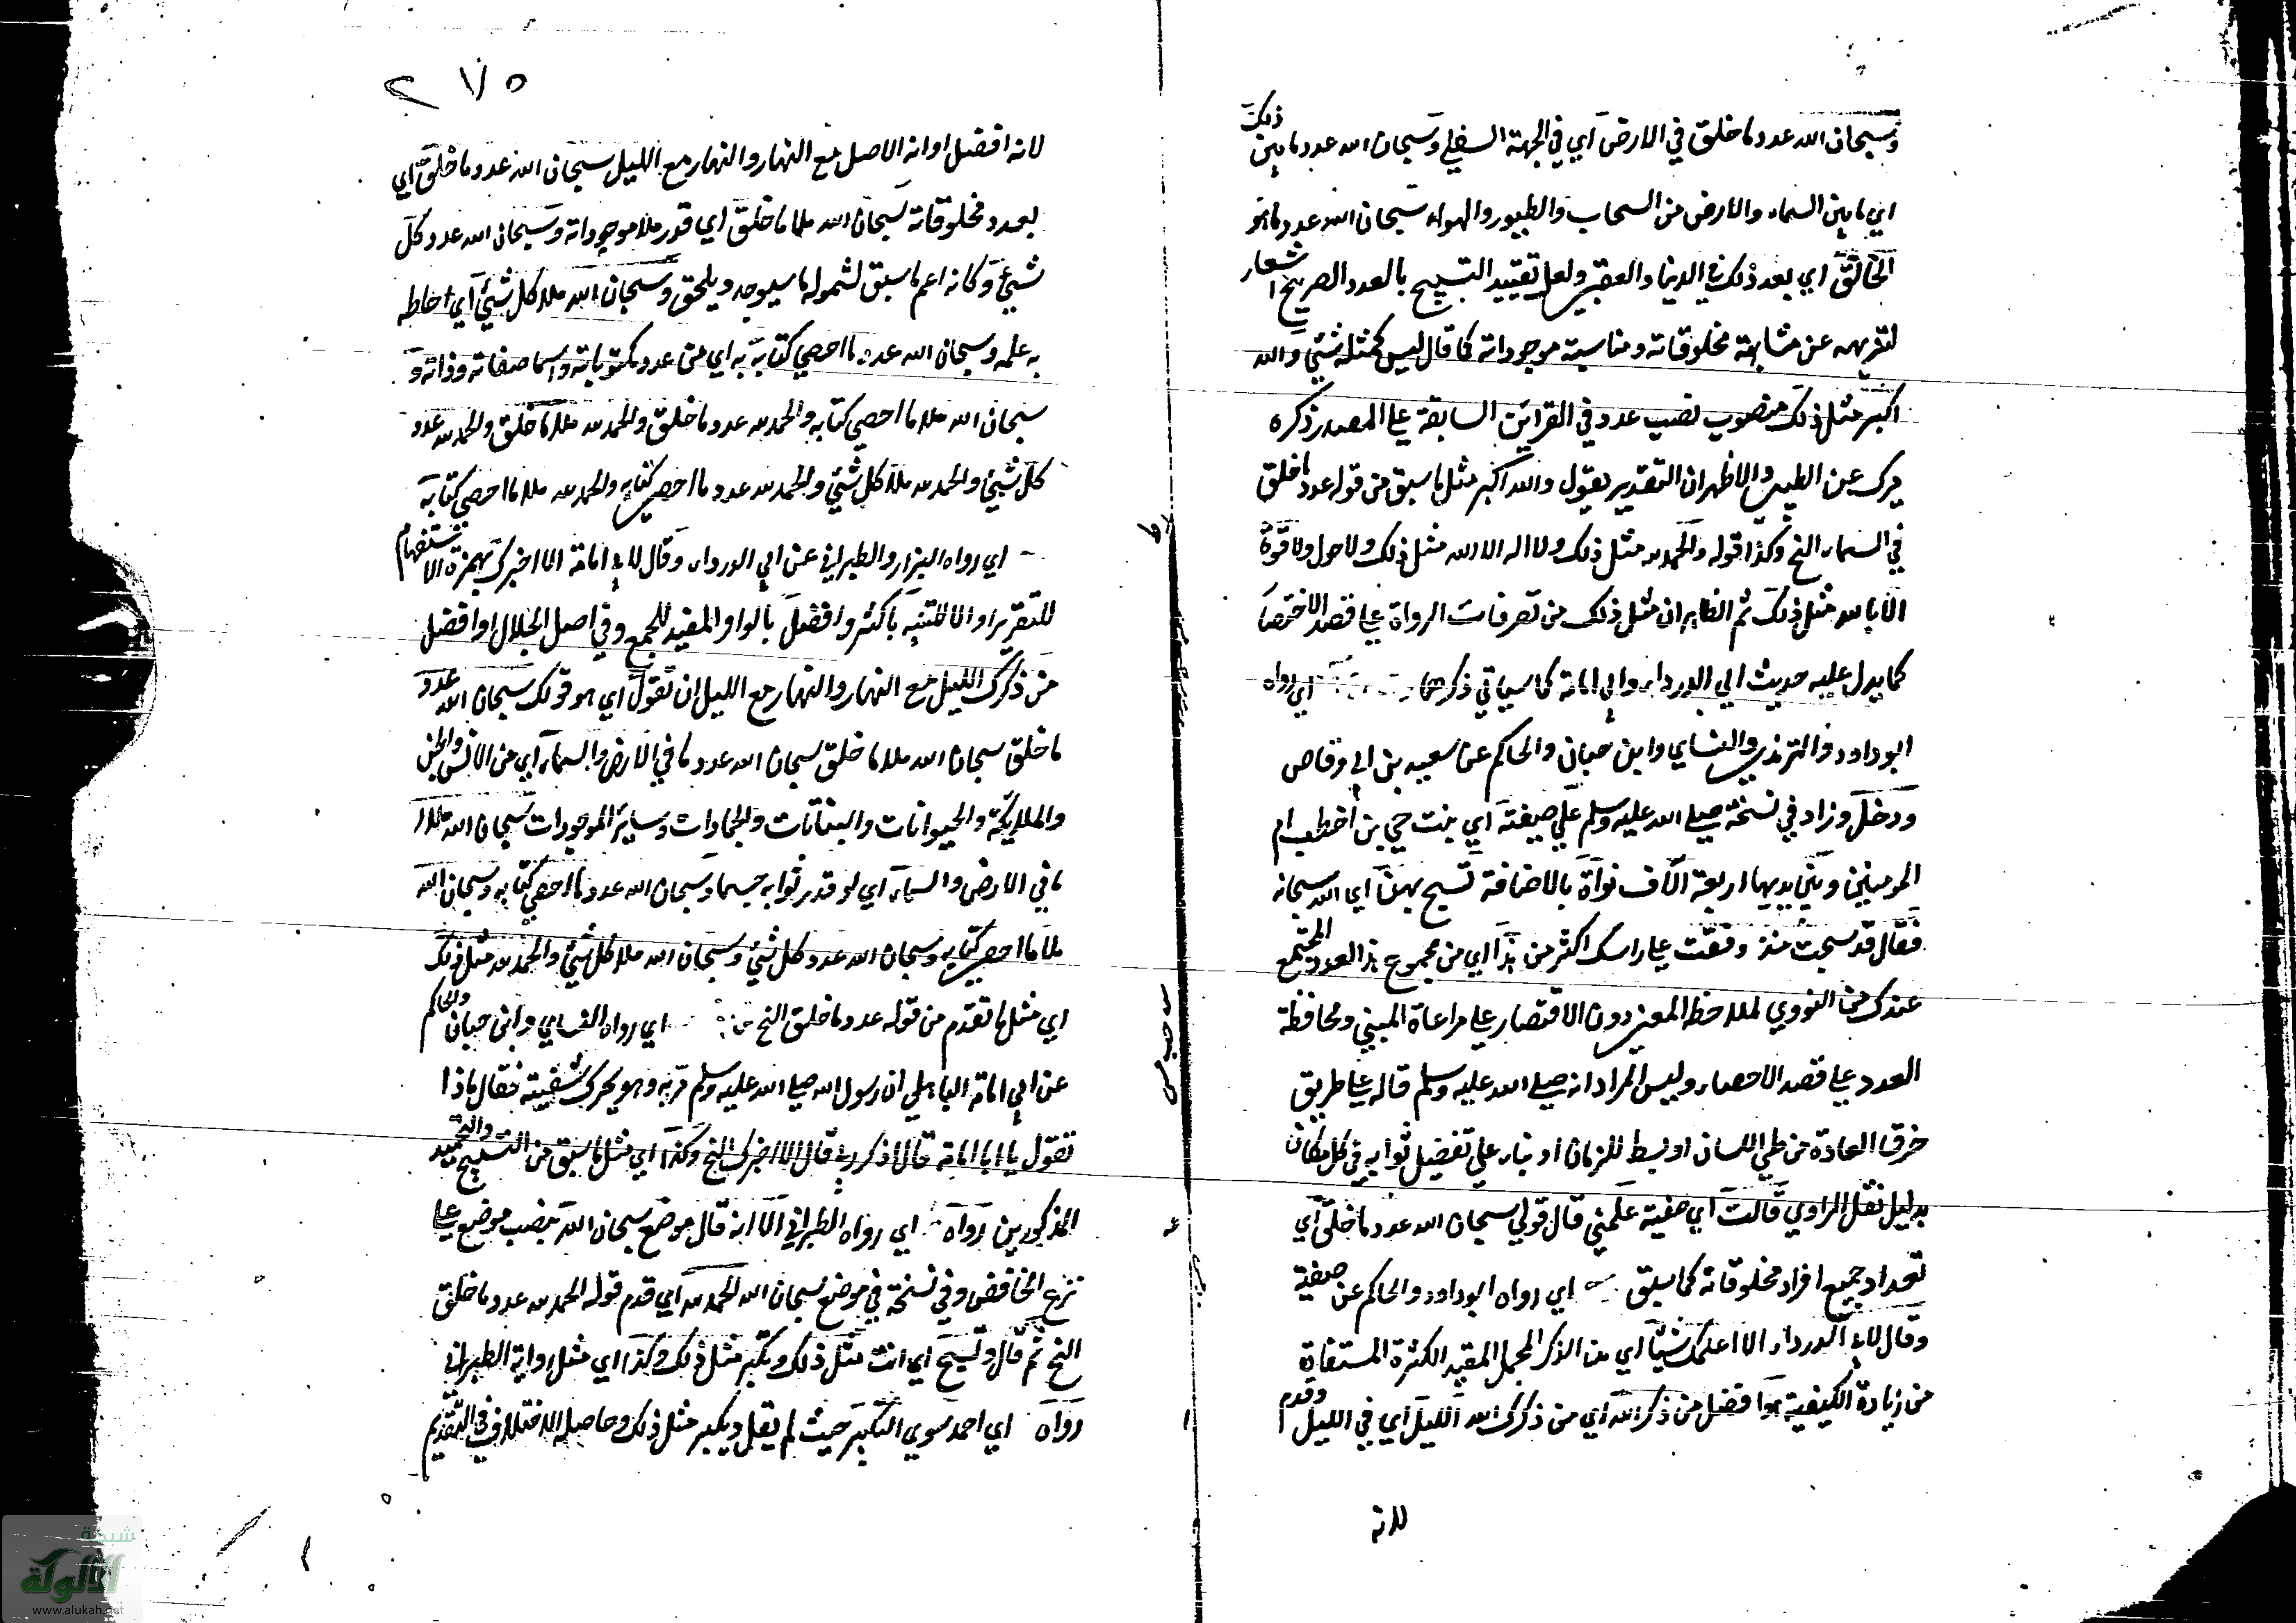 وسبحان الله عدد ما خلق في الارض اي في الجهة السفلي وسبحان الله عدد ما بين ذلك
اي ما بين السماء والارض من السحاب والطيور والهواء سبحان الله عدد ما هو
الخالق اي بعد ذلك في الدنيا والعقبي ولعل تقييد التسبيح بالعدد الصريح اشعار
لتنزيهه عن مشابهة مخلوقاته ومناسبة موجوداته كما قال ليس كمثله شئ والله
اكبر مثل ذلك منصوب نصب عدد في القرائن السابقة علي المصدر ذكره
ميرك عن الطيبي والاظهر ان التقدير يقول والله اكبر مثل ما سبق من قوله عدد ما خلق
في السماء الخ وكذا قوله والحمد لله مثل ذلك ولا اله الا الله مثل ذلك ولا حول ولا قوة
الا بالله مثل ذلك ثم الظاهر ان مثل ذلك من تصرفات الرواة علي قصد الاختصار
كما يدل عليه حديث ابي الدرداء وابي امامة كما سياتي ذكرهما اي رواه
ابو داود والترمذي والنساي وابن حبان والحاكم عن سعيد بن ابي وقاص
ودخل وزاد في نسخة صلي الله عليه وسلم علي صفية اي بنت حيي بن اخطب ام
المومنين وبين يديها اربعة آلاف نواة بالاضافة تسبح بهن اي الله سبحانه
فقال قد سبحت منذ وقفت علي راسك اكثر من هذا اي من مجموع هذا العدد المجتمع
عندك من النووي لملاحظة المعني دون الاقتصار علي مراعاة المبني ومحافظة
العدد علي قصد الاحصاء وليس المراد انه صلي الله عليه وسلم قاله علي طريق
خرق العادة من طي اللسان او بسط للزمان او بناء علي تفضيل ثوابه في كل مكان
بدليل نقل الراوي قالت اي صفية علمني قال قولي سبحان الله عدد ما خلق اي
تعداد جميع افراد مخلوقاته كما سبق اي رواه ابو داود والحاكم عن صفية
وقال لابي الدرداء الا اعلمك شيئا اي من الذكر المجمل المفيد الكثرة المستفادة
من زيادة الكيفية هو افضل من ذكر الله اي من ذكرك الله الليل اي في الليل وقدم
لانه
٢٧٥
لانه افضل او انه الاصل مع النهار والنهار مع الليل سبحان الله عدد ما خلق اي
بعدد مخلوقاته سبحان الله ملأ ما خلق اي قدر ملأ موجوداته وسبحان الله عدد كل
شئ وكانه اعم ما سبق لشموله ما سيوجد ويلحق وسبحان الله ملأ كل شئ اي احاطه
به علمه وسبحان الله عدد ما احصي كتابه به اي من عدد مكتوباته واسما صفاته وذاته و
سبحان الله ملأ ما احصي كتابه والحمد لله عدد ما خلق والحمد لله ملأ ما خلق والحمد لله عدد
كل شئ والحمد لله ملأ كل شئ والحمد لله عدد ما احصي كتابه والحمد لله ملأ ما احصي كتابه
اي رواه البزار والطبراني عن ابي الدرداء وقال لابي امامة الا اخبرك بهمزة الاستفهام
للتقرير او الا للتنبيه باكثر وافضل بالواو المفيد للجمع وفي اصل الجلال او افضل
من ذكرك الليل مع النهار والنهار مع الليل ان تقول اي هو قولك سبحان الله عدد
ما خلق سبحان الله ملأ ما خلق سبحان الله عدد ما في الارض والسماء اي من الانس والجن
والملائكة والحيوانات والنباتات والجمادات وساير الموجودات سبحان الله ملأ
ما في الارض والسماء اي لو قدر ثوابه جسما وسبحان الله عدد ما احصي كتابه وسبحان الله
ملأ ما احصي كتابه وسبحان الله عدد كل شئ وسبحان الله ملأ كل شئ والحمد لله مثل ذلك
اي مثل ما تقدم من قوله عدد ما خلق الخ اي رواه النساي وابن حبان والحاكم
عن ابي امامة الباهلي ان رسول الله صلي الله عليه وسلم مر به وهو يحرك شفتيه فقال ماذا
تقول يا ابا امامة قال اذكر ربي قال الا اخبرك الخ وكذا اي مثل ما سبق من التسبيح والتحميد
المذكورين رواه اي رواه الطبراني الا انه قال موضع سبحان الله بنصب موضع علي
نزع الخافض وفي نسخة في موضع سبحان الله الحمد لله اي قدم قوله الحمد لله عدد ما خلق
الخ ثم قال وتسبح اي انت مثل ذلك وتكبر مثل ذلك وكذا اي مثل رواية الطبراني
رواه اي احمد سوي التكبير حيث لم يقل ويكبر مثل ذلك وحاصله الاختلاف في التقديم
شبكة
الألوكة
www.alukah.net